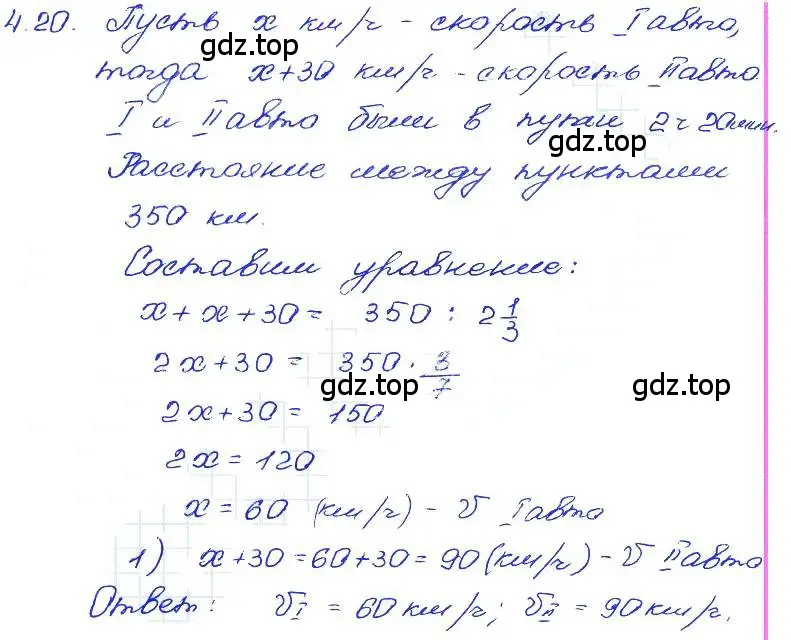 4.20. Пусть x км/ч - скорость I авто,
gdz.top
тогда x+30 км/ч. - скорость II авто.
I и II авто были в пути 2 ч 20 мин.
gdz.top
Расстояние между пунктами
350 км.
Составим уравнение:
x + x + 30 = 350 : 2 1/3
2x + 30 = 350 · 3/7
gdz.top gdz.top
2x + 30 = 150
2x = 120
x = 60 (км/ч) - V I авто
1) x + 30 = 60 + 30 = 90 (км/ч) - V II авто
gdz.top
Ответ: V I = 60 км/ч; V II = 90 км/ч.